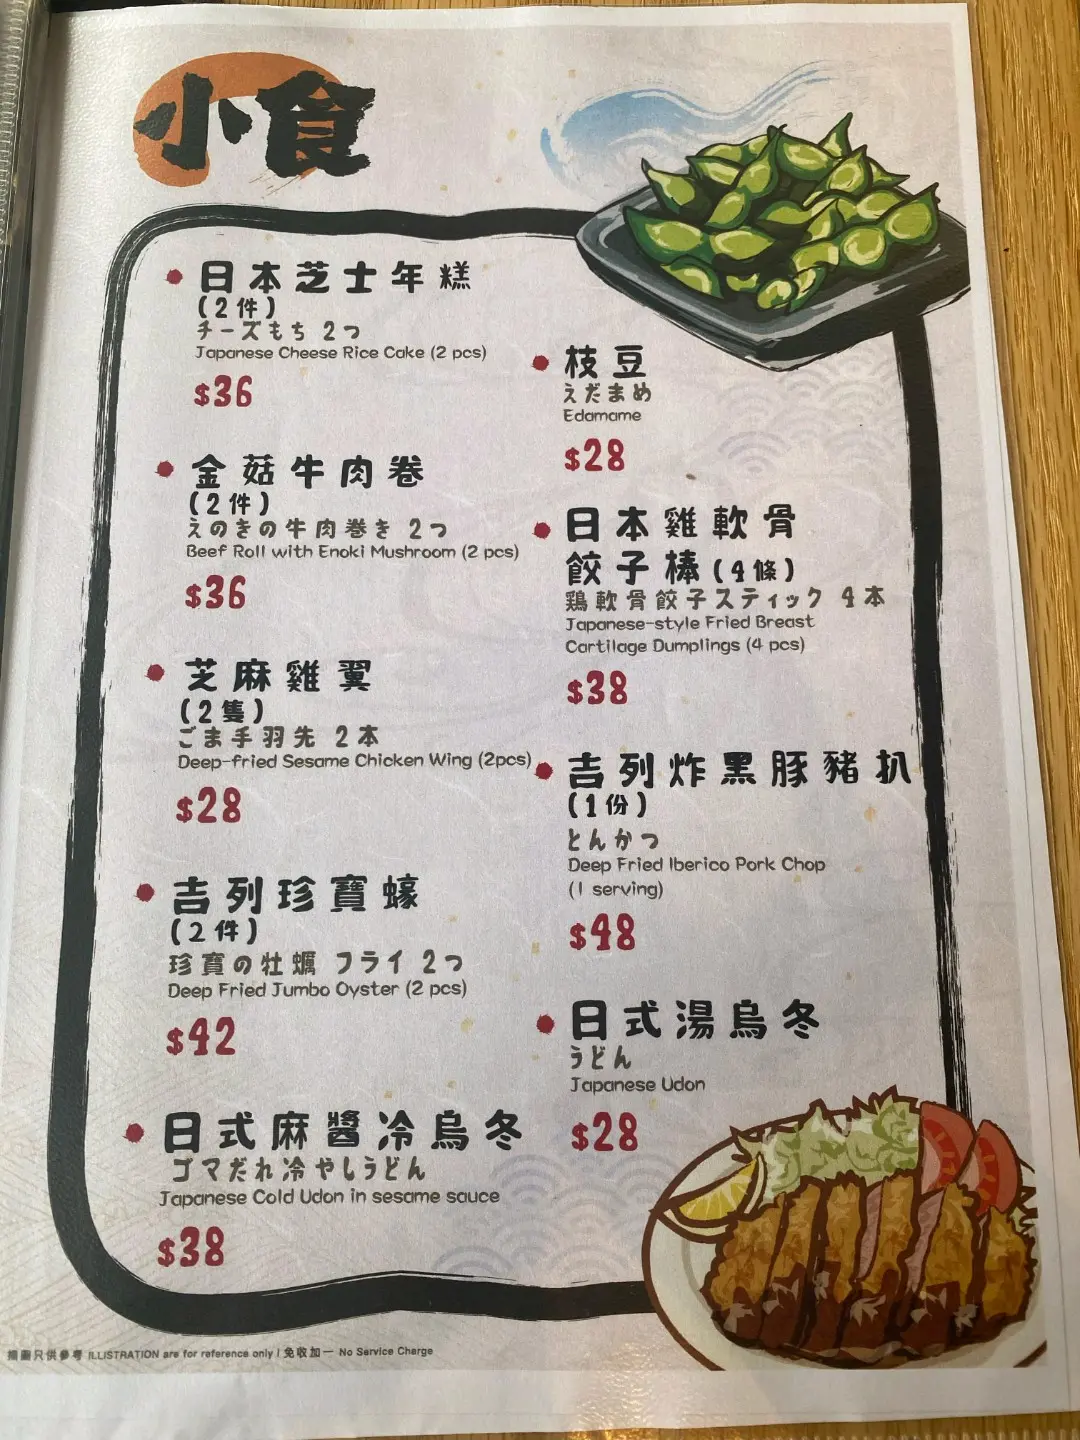 小食
日本芝士年糕
(2件)
チーズもち 2つ
Japanese Cheese Rice Cake (2 pcs)
$36
金菇牛肉卷
(2件)
えのきの牛肉巻き 2つ
Beef Roll with Enoki Mushroom (2 pcs)
$36
芝麻雞翼
(2隻)
ごま手羽先 2本
Deep-fried Sesame Chicken Wing (2pcs)
$28
吉列珍寶蠔
(2件)
珍寶の牡蠣 フライ 2つ
Deep Fried Jumbo Oyster (2 pcs)
$42
日式麻醬冷烏冬
ゴマだれ冷やしうどん
Japanese Cold Udon in sesame sauce
$38
枝豆
えだまめ
Edamame
$28
日本雞軟骨
餃子棒(4條)
鶏軟骨餃子スティック 4本
Japanese-style Fried Breast
Cartilage Dumplings (4 pcs)
$38
吉列炸黑豚豬扒
(1份)
とんかつ
Deep Fried Iberico Pork Chop
(1 serving)
$48
日式湯烏冬
うどん
Japanese Udon
$28
插圖只供參考 ILLISTRATION are for reference only / 免收加一 No Service Charge